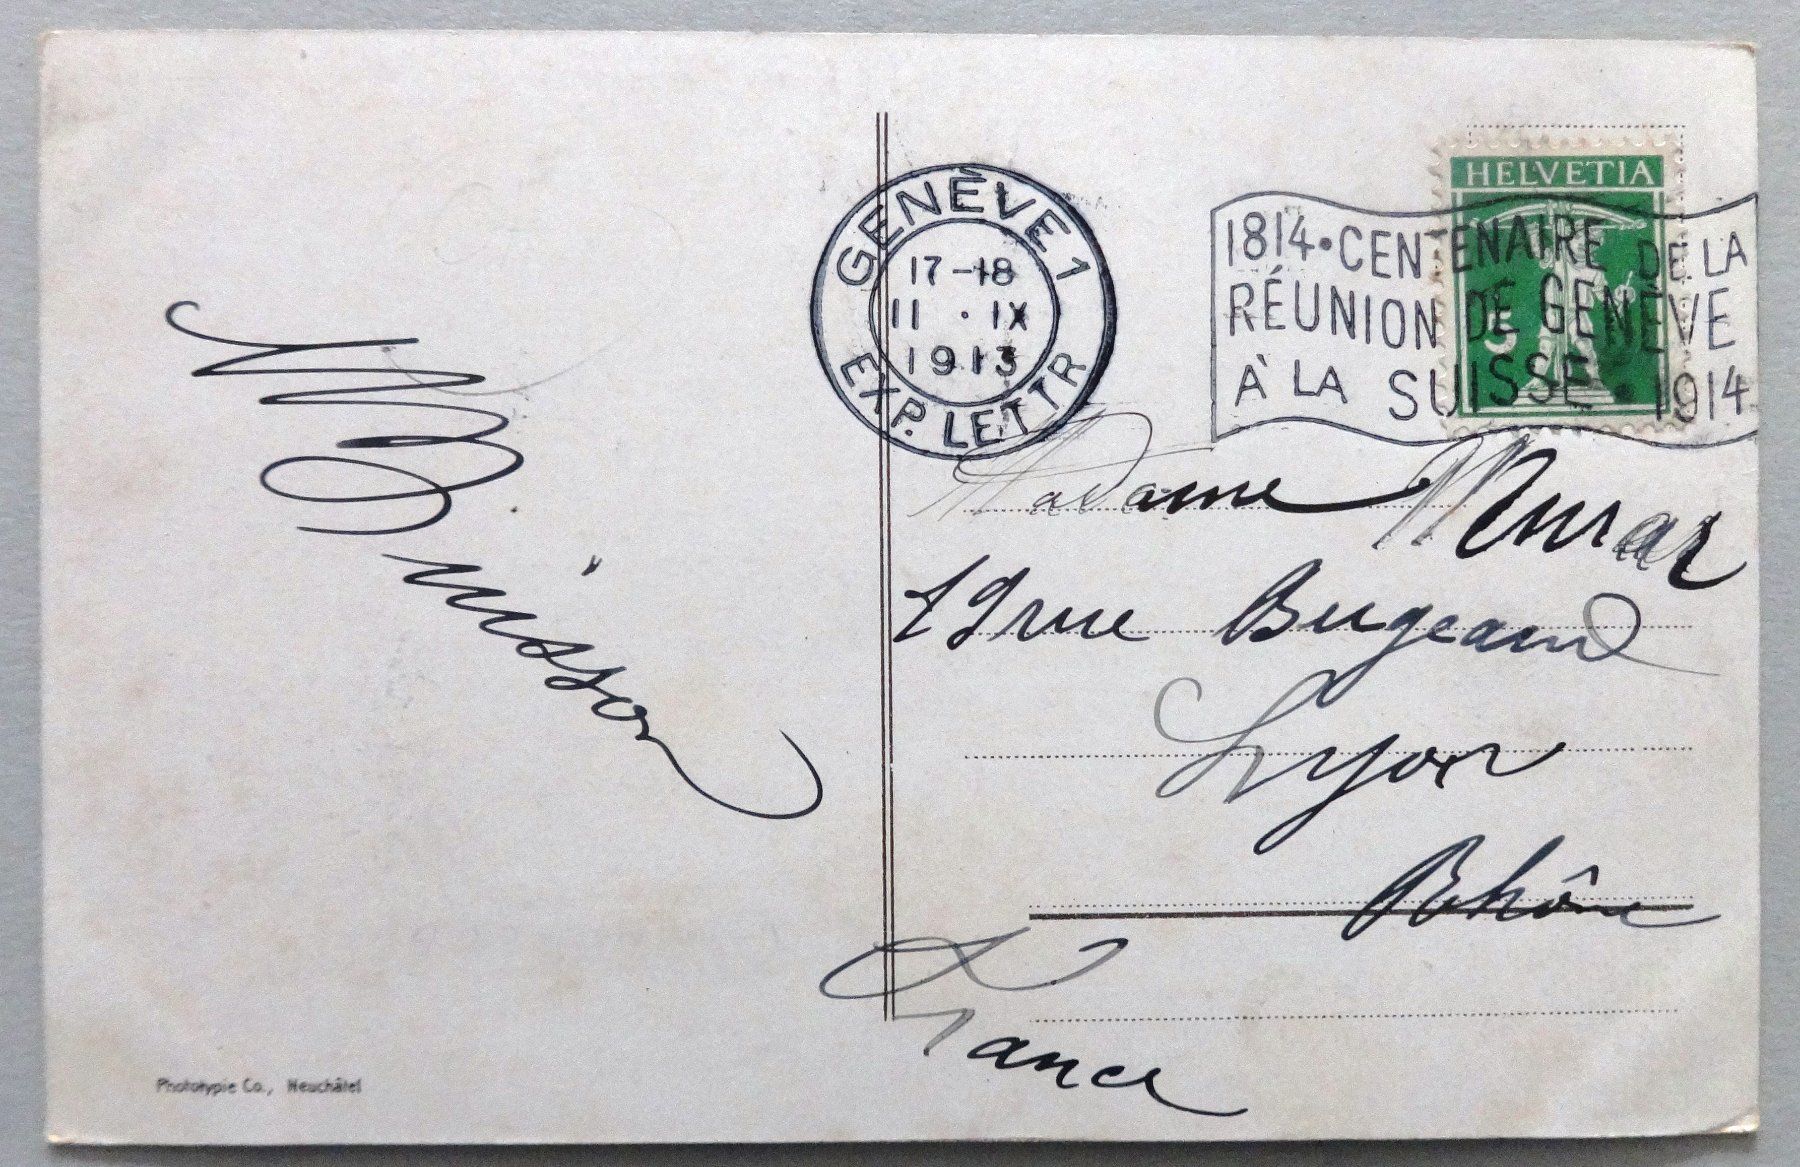 HELVETIA
5
GENÈVE 1
17-18
11 . IX
1913
EXP. LETTR
1814 • CENTENAIRE DE LA
RÉUNION DE GENÈVE
À LA SUISSE • 1914
Madame Murat
19 rue Bugeaud
Lyon
Rhône
France
Phototypie Co., Neuchâtel